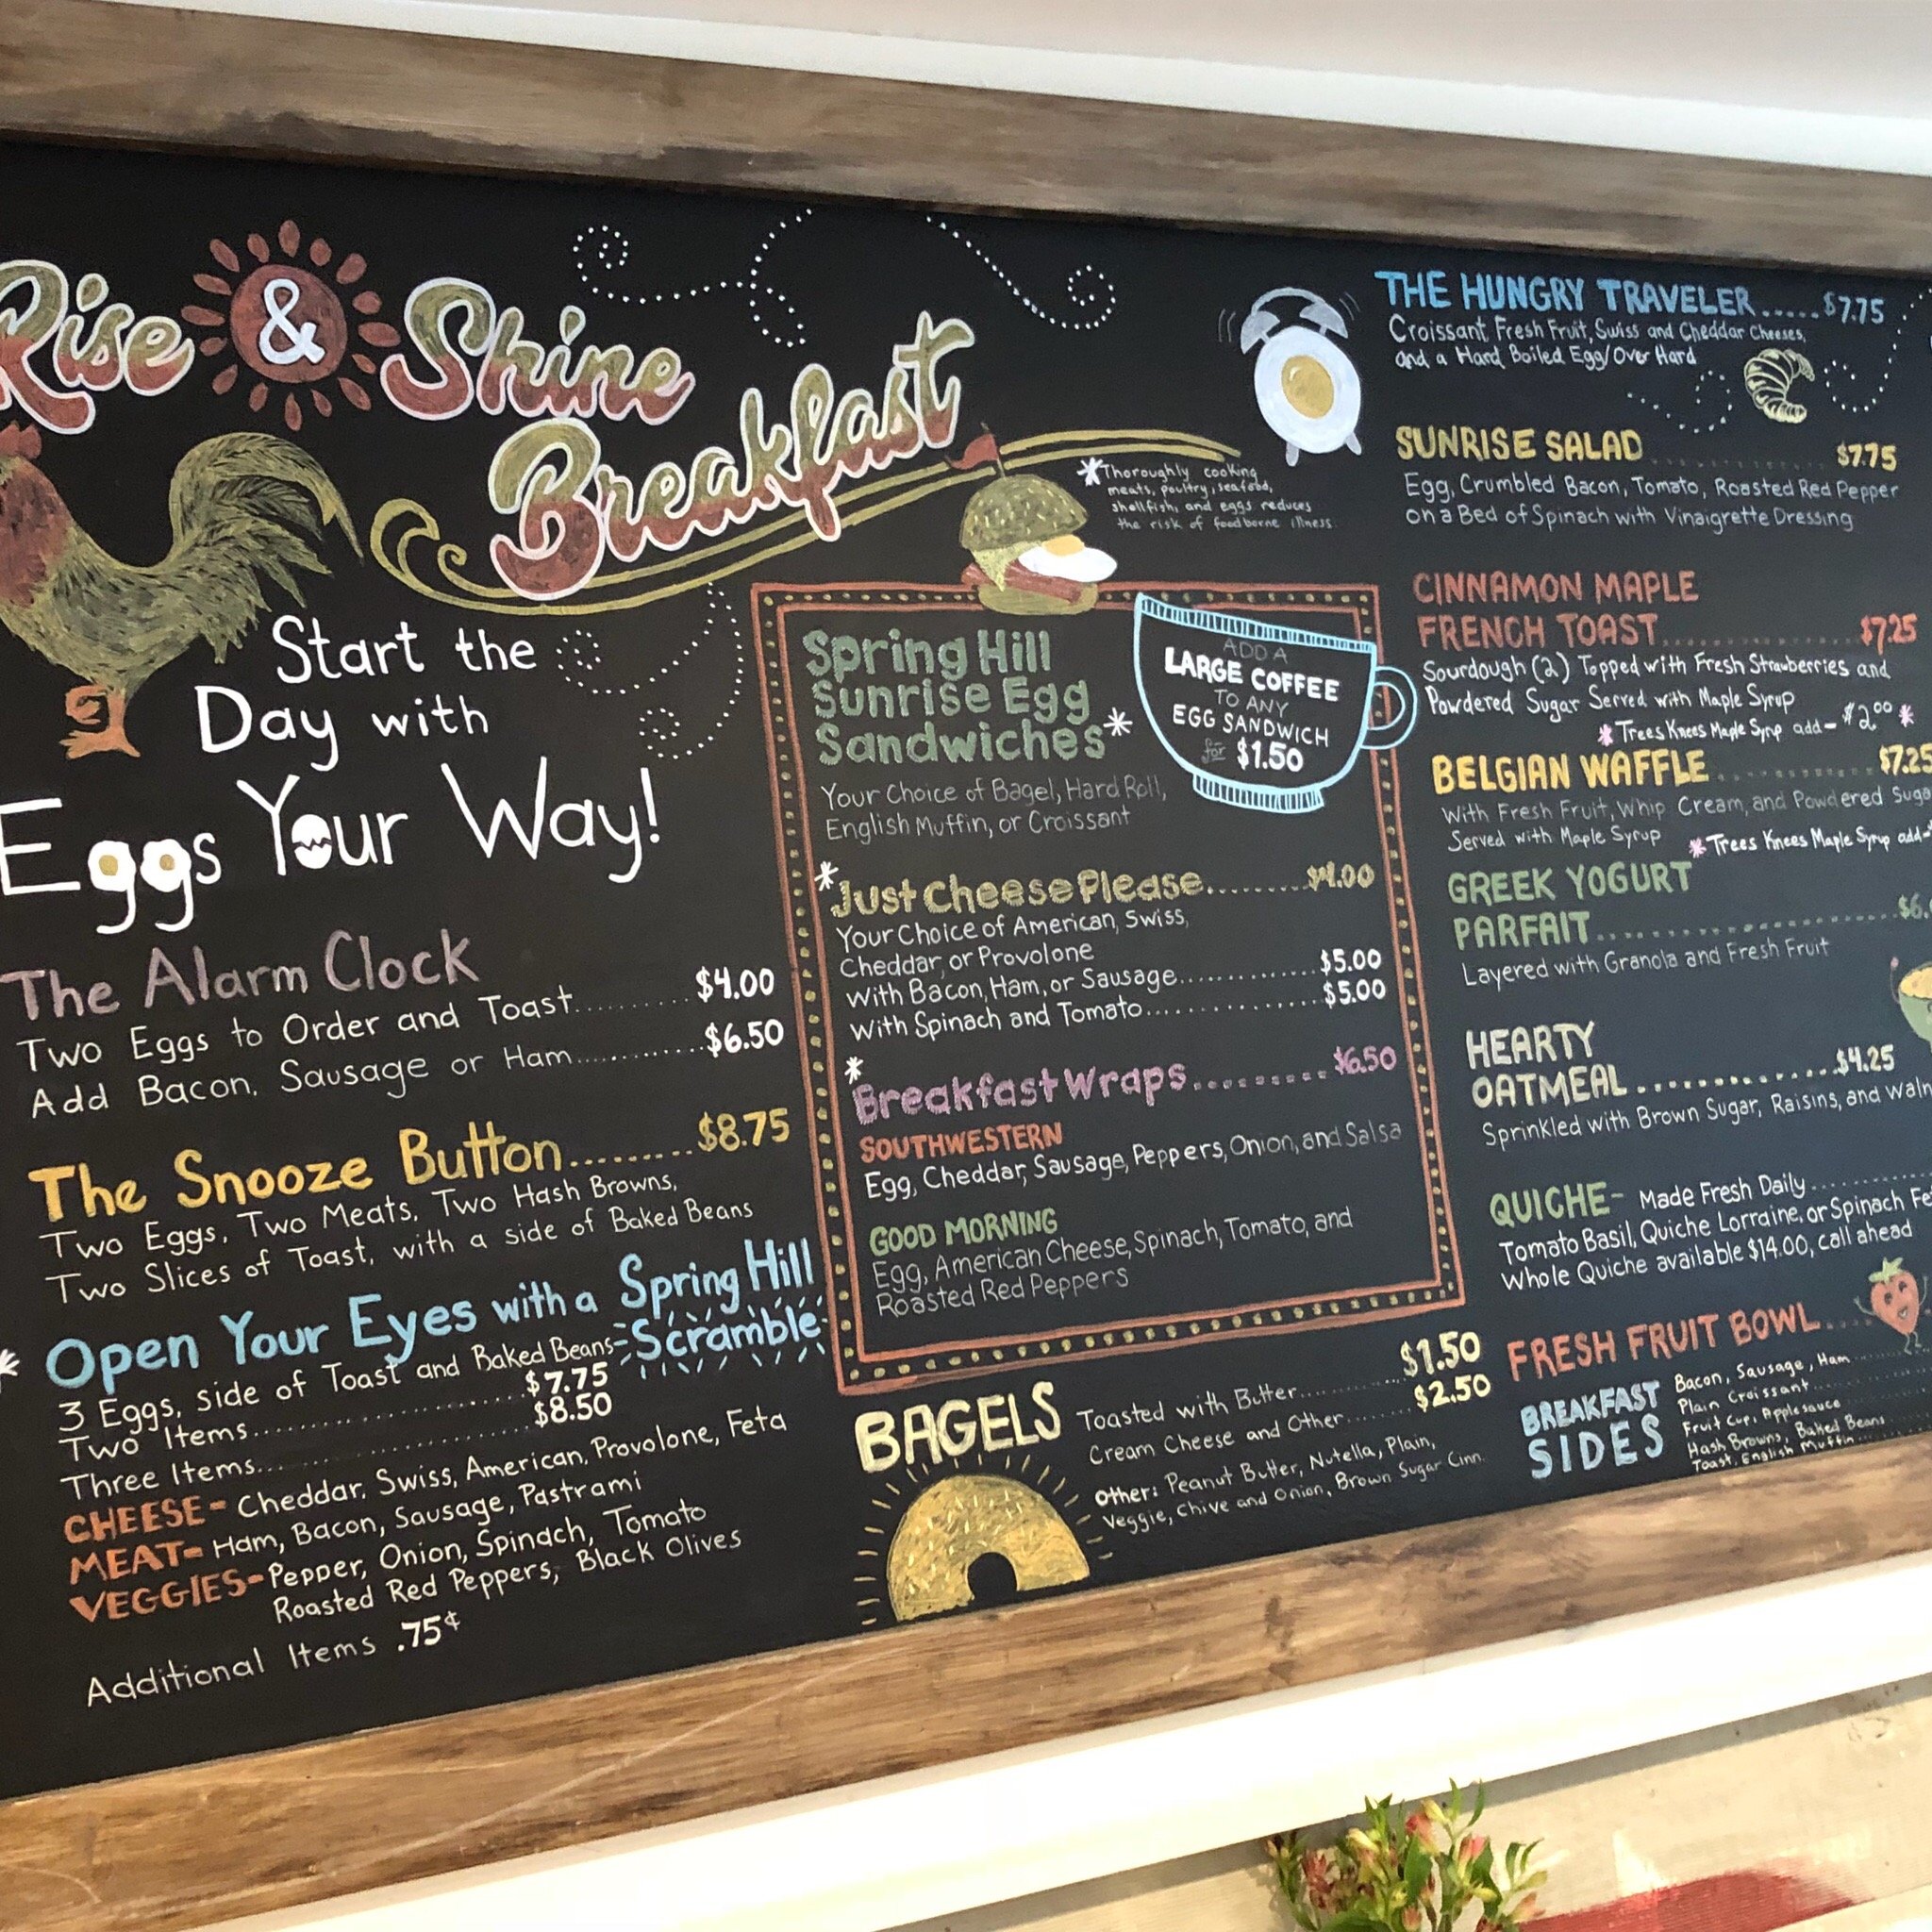 Rise & Shine
Breakfast
Start the
Day with
Eggs Your Way!
The Alarm Clock
Two Eggs to Order and Toast.......... $4.00
Add Bacon, Sausage or Ham............. $6.50
The Snooze Button......... $8.75
Two Eggs, Two Meats, Two Hash Browns,
Two Slices of Toast, with a side of Baked Beans
* Open Your Eyes with a Spring Hill
Scramble
3 Eggs, side of Toast and Baked Beans-
Two Items.......................... $7.75
Three Items.......................... $8.50
CHEESE- Cheddar, Swiss, American, Provolone, Feta
MEAT- Ham, Bacon, Sausage, Pastrami
VEGGIES- Pepper, Onion, Spinach, Tomato
Roasted Red Peppers, Black Olives
Additional Items .75¢
*Thoroughly cooking
meats, poultry, seafood,
shellfish, and eggs reduces
the risk of foodborne illness
Spring Hill
Sunrise Egg
Sandwiches*
ADD A
LARGE COFFEE
TO ANY
EGG SANDWICH
for $1.50
Your Choice of Bagel, Hard Roll,
English Muffin, or Croissant
*Just Cheese Please......... $4.00
Your Choice of American, Swiss,
Cheddar, or Provolone
With Bacon, Ham, or Sausage............. $5.00
With Spinach and Tomato................ $5.00
*Breakfast Wraps......... $6.50
SOUTHWESTERN
Egg, Cheddar, Sausage, Peppers, Onion, and Salsa
GOOD MORNING
Egg, American Cheese, Spinach, Tomato, and
Roasted Red Peppers
BAGELS
Toasted with Butter............ $1.50
Cream Cheese and Other........ $2.50
Other: Peanut Butter, Nutella, Plain,
Veggie, Chive and Onion, Brown Sugar Cinn.
THE HUNGRY TRAVELER..... $7.75
Croissant, Fresh Fruit, Swiss and Cheddar Cheeses,
and a Hard Boiled Egg/Over Hard
SUNRISE SALAD ............ $7.75
Egg, Crumbled Bacon, Tomato, Roasted Red Pepper
on a Bed of Spinach with Vinaigrette Dressing
CINNAMON MAPLE
FRENCH TOAST............ $7.25
Sourdough (2) Topped with Fresh Strawberries and
Powdered Sugar Served with Maple Syrup
*Trees Knees Maple Syrup add- $2.00 *
BELGIAN WAFFLE............ $7.25
With Fresh Fruit, Whip Cream, and Powdered Suga
Served with Maple Syrup
*Trees Knees Maple Syrup add-
GREEK YOGURT
PARFAIT.................... $6.
Layered with Granola and Fresh Fruit
HEARTY
OATMEAL............... $4.25
Sprinkled with Brown Sugar, Raisins, and Waln
QUICHE- Made Fresh Daily...........
Tomato Basil, Quiche Lorraine, or Spinach Fe
Whole Quiche available $14.00, call ahead
FRESH FRUIT BOWL....
BREAKFAST
SIDES
Bacon, Sausage, Ham........
Plain Croissant............
Fruit Cup, Applesauce
Hash Browns, Baked Beans......
Toast, English Muffin......